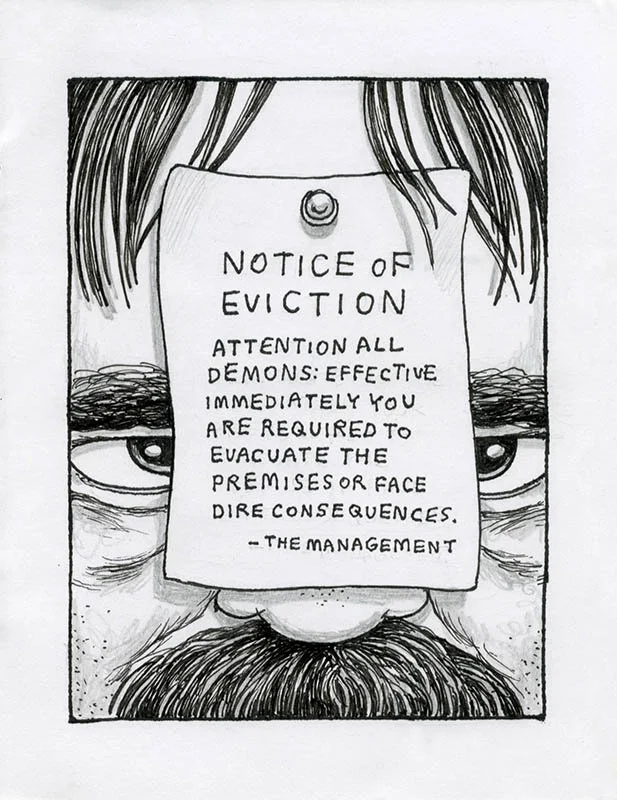 NOTICE OF
EVICTION
ATTENTION ALL
DEMONS: EFFECTIVE
IMMEDIATELY YOU
ARE REQUIRED TO
EVACUATE THE
PREMISES OR FACE
DIRE CONSEQUENCES.
- THE MANAGEMENT